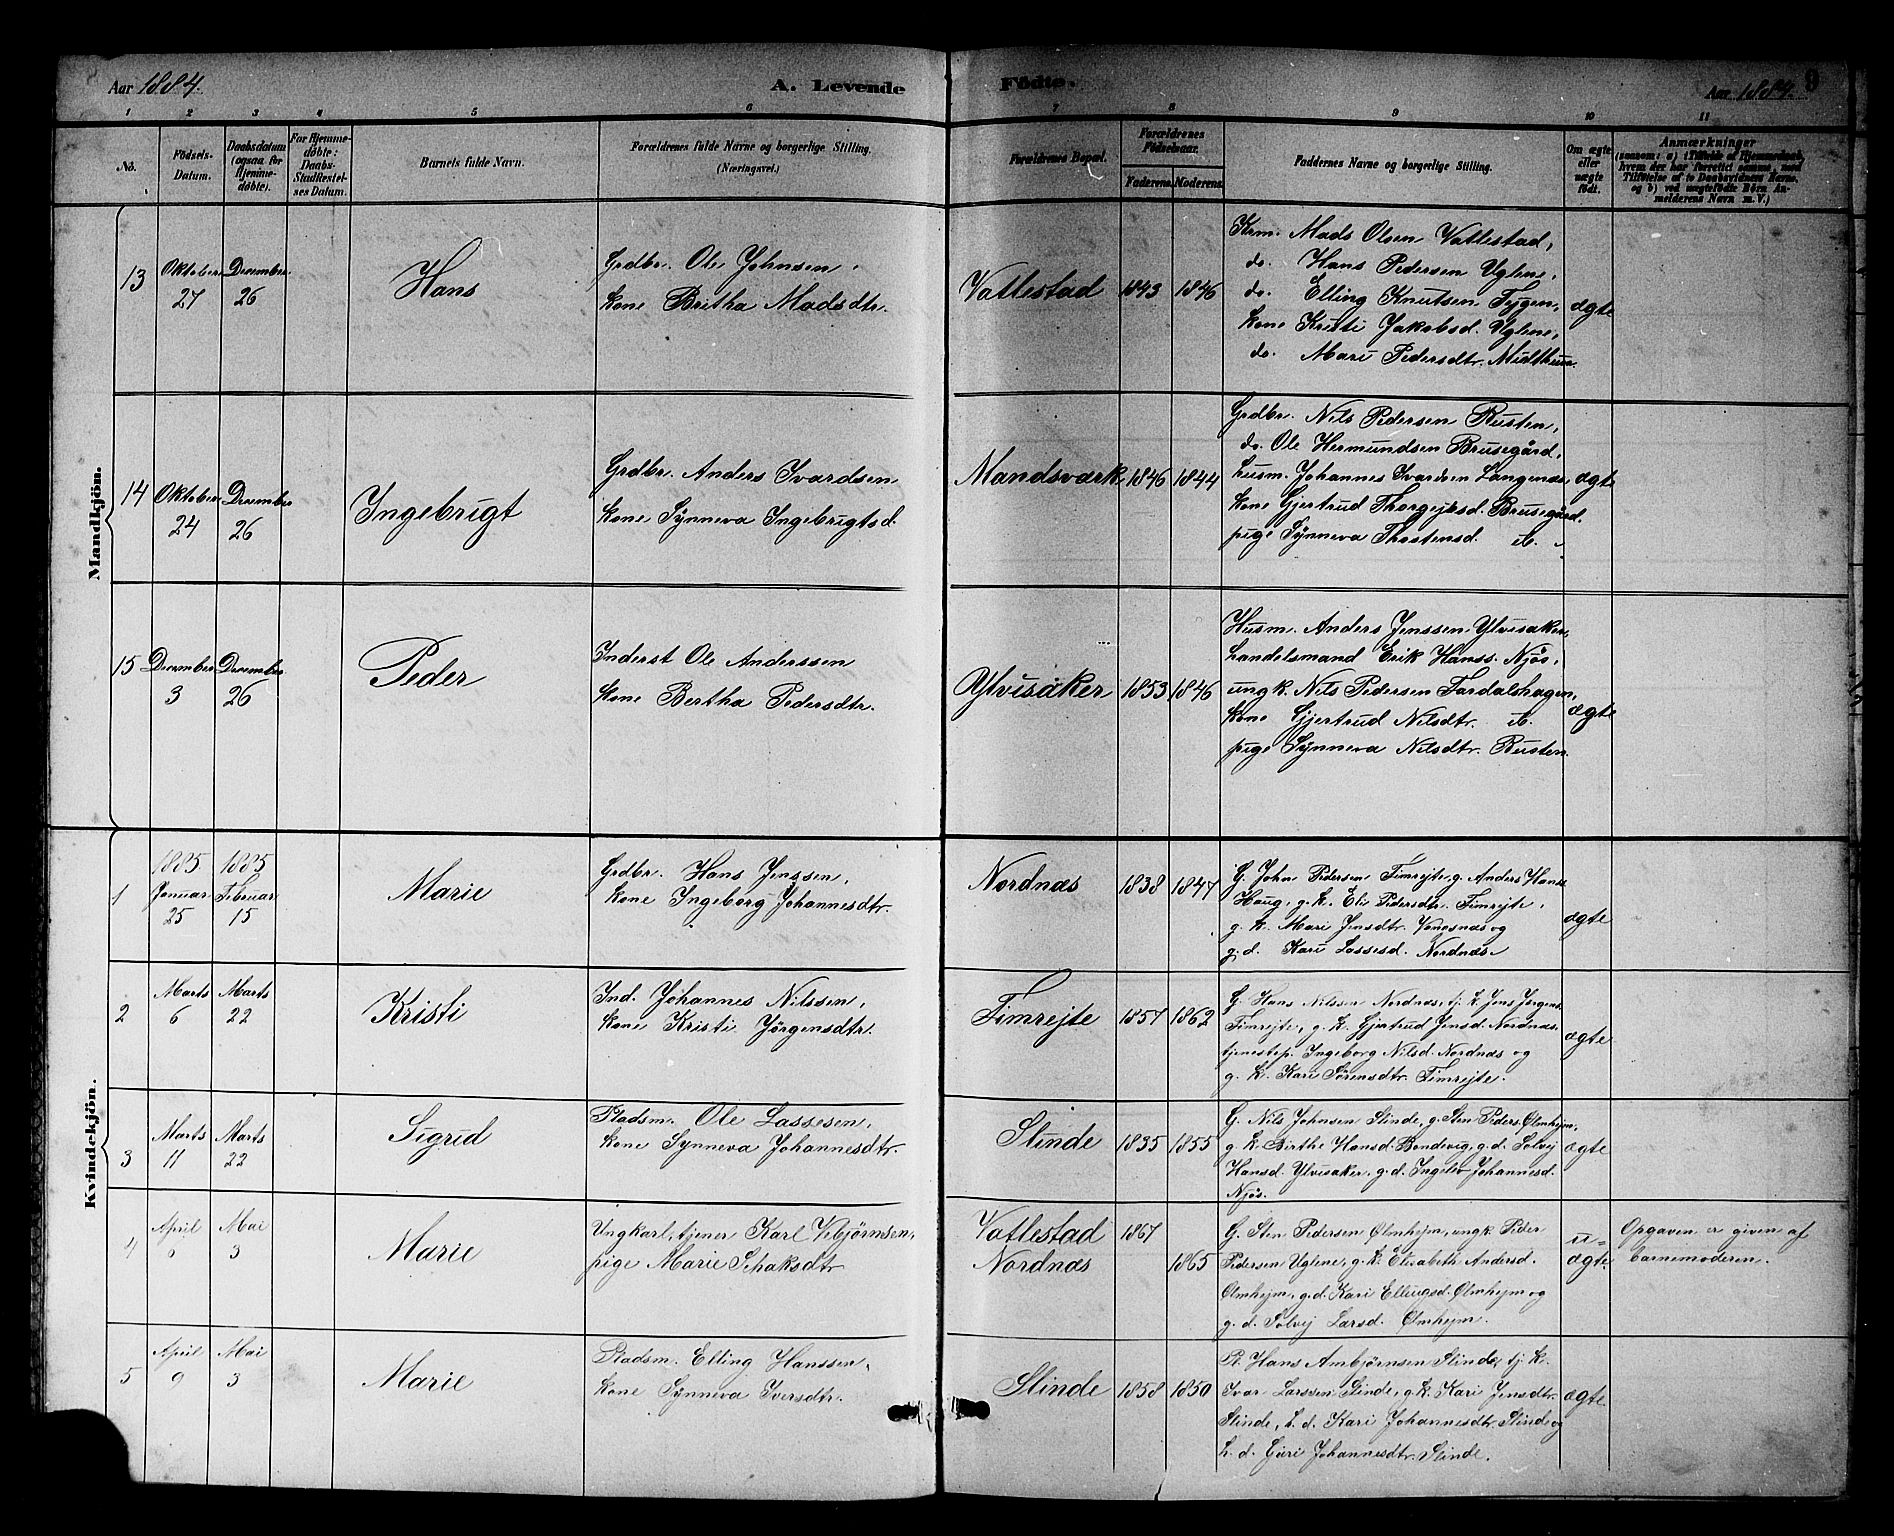 Aar 1884.
A. Levende Födte.
Aar 1884. 9
1 2 3 4 5 6 7 8 9 10 11
No.
Födsels-
Datum.
Daabsdatum
(ogsaa for
Hjemme-
døbte).
For Hjemme-
døbte:
Daabs-
Stadfæstel-
ses Datum.
Barnets fulde Navn.
Forældrenes fulde Navne og borgerlige Stilling.
(Næringsvei.)
Forældrenes Bopæl.
Forældrenes
Födselsaar.
Faderens. Moderens.
Faddernes Navne og borgerlige Stilling.
Om ægte
eller
uægte
födt.
Anmærkninger
Mandkjön.
13
Oktober
27
December
26
Hans
Grdbr. Ole Johnsen,
Kone Britha Madsdtr.
Vatlestad
1843
1846
Krm. Mads Olsen Vatlestad,
do. Hans Pedersen Uglene,
do. Elling Knutsen
Kone Kristi Jakobsd. Uglene,
do. Mari Pedersdtr.
ægte
14
Oktober
24
December
26
Ingebrigt
Grdbr. Anders Ivardsen
Kone Synneva Ingebrigtsd.
Mandsværk
1846
1844
Grdbr. Nils Pedersen Rusten,
do. Ole Hermundsen Brusegård,
husm. Johannes Ivardsen
Kone Gjertrud Brusegård.
pige Synneva Thostensd. ib.
ægte
15
December
3
December
26
Peder
Inderst Ole Anderssen
Kone Bertha Pedersdtr.
Ylvisåker
1853
1846
Husm. Anders Jenssen Ylvisaker,
Handelsmand Erik Hanss. Njøs,
ungk. Nils Pedersen Fardalshagen,
Kone Gjertrud Nilsdtr. ib.
pige Synneva Nilsdtr. Rusten.
ægte
Kvindekjön.
1
1885
Januar
25
1885
Februar
15
Marie
Grdbr. Hans Jenssen,
Kone Ingeborg Johannesdtr.
Nordnæs
1838
1847
G. John Pedersen Fimrejte, g. Anders Hans.
Haug, g. k. Eli Pedersdtr. Fimrejte,
g. k. Mari Jensdtr. Vangsnæs og
g. d. Kari Lassesd. Nordnæs
ægte
2
Marts
6
Marts
22
Kristi
Ind. Johannes Nilssen,
Kone Kristi Jörgensdtr.
Fimrejte
1857
1862
G. Hans Nilssen Nordnæs, tj. k. Jens Jörgens.
Fimrejte, g. k. Gjertrud Jensd. Nordnæs
tjenestep. Ingeborg Nilsd. Nordnæs og
g. k. Kari Sörensdtr. Fimrejte.
ægte
3
Marts
11
Marts
22
Sigrid
Pladsm. Ole Lassesen,
Kone Synneva Johannesdtr.
Slinde
1835
1855
G. Nils Johnsen Slinde, g. Sten Peders. Ølmhejm,
g. k. Birthe Hansd. Bondevig, g. d. Solvij
Hansd. Ylvisaker, g. d. Johannesd.
Njøs.
ægte
4
April
Mai
3
Marie
Ungkarl, tjener Karl Vebjørnsen,
pige Marie Schaksdtr
Vatlestad
Nordnæs
1867
1865
G. Sten Pedersen Ølmhejm, ungk. Peder
Pedersen Uglene, g. k. Elisabeth Andersd.
Ølmhejm, g. d. Kari Ellingsd. Ølmhejm og
g. d. Solvij Larsd. Ølmhejm.
u=
ægte.
Opgaven er given af
barnemoderen.
5
April
9
Mai
3
Marie
Pladsm. Elling Hanssen,
Kone Synneva Iversdtr.
Slinde
1858
1850
Pl. Hans Ambjörnsen Slinde, tj. k.
Ivar Larssen Slinde, g. k. Kari Jensdtr.
Slinde, h. d. Kari Johannesdtr. Slinde og
h. d. Guri Johannesdtr. Slinde.
ægte.